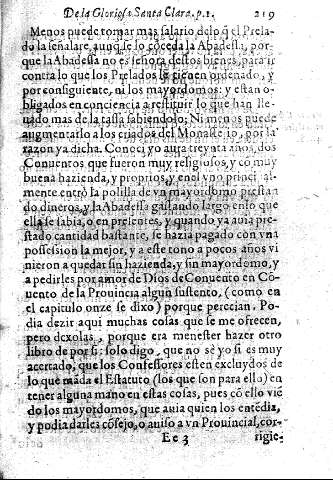 De la Gloriosa Santa Clara. p. 1. 219
Menos puede tomar mas salario delo q̃ el Prela-
do la señalare, aunq̃ se lo cõceda la Abadessa, por-
que la Abadessa no es señora destos bienes, para ir
contra lo que los Prelados tienen ordenado, y
por consiguiente, ni los mayordomos: y estan o-
bligados en conciencia a restituir lo que han lle-
uado mas de la tassa sabiendolo; Ni menos puede
augmentarlo a los criados del Monasterio, por la
razon ya dicha. Conoci yo aura treynta años, dos
Conuentos que fueron muy religiosos, y cõ muy
buena hazienda, y proprios, y en el vno princi al-
mente entrò la polilla de vn mayordomo prestan
do dineros, y la Abadessa gastando largo en lo que
ella se sabia, o en presentes, y quando ya auia pre-
stado cantidad bastante, se hazia pagado con vna
possession la mejor, y a este tono a pocos años vi
nieron a quedar sin hazienda, y sin mayordomo, y
a pedirles por amor de Dios de Conuento en Cõ-
uento de la Prouincia algun sustento, (como en
el capitulo onze se dixo) porque perecian. Po-
dia dezir aqui muchas cosas que se me ofrecen,
pero dexolas, porque era menester hazer otro
libro de por si: solo digo, que no sè yo si es muy
acertado, que los Confessores esten excluydos de
lo que mãda el Estatuto (los que son para ello) en
tener alguna mano en estas cosas, pues cõ ello viẽ
do los mayordomos, que auia quien los entẽdia,
y podia darles cõsejo, o auiso a vn Prouincial, cor-
Ee 3 rigie-